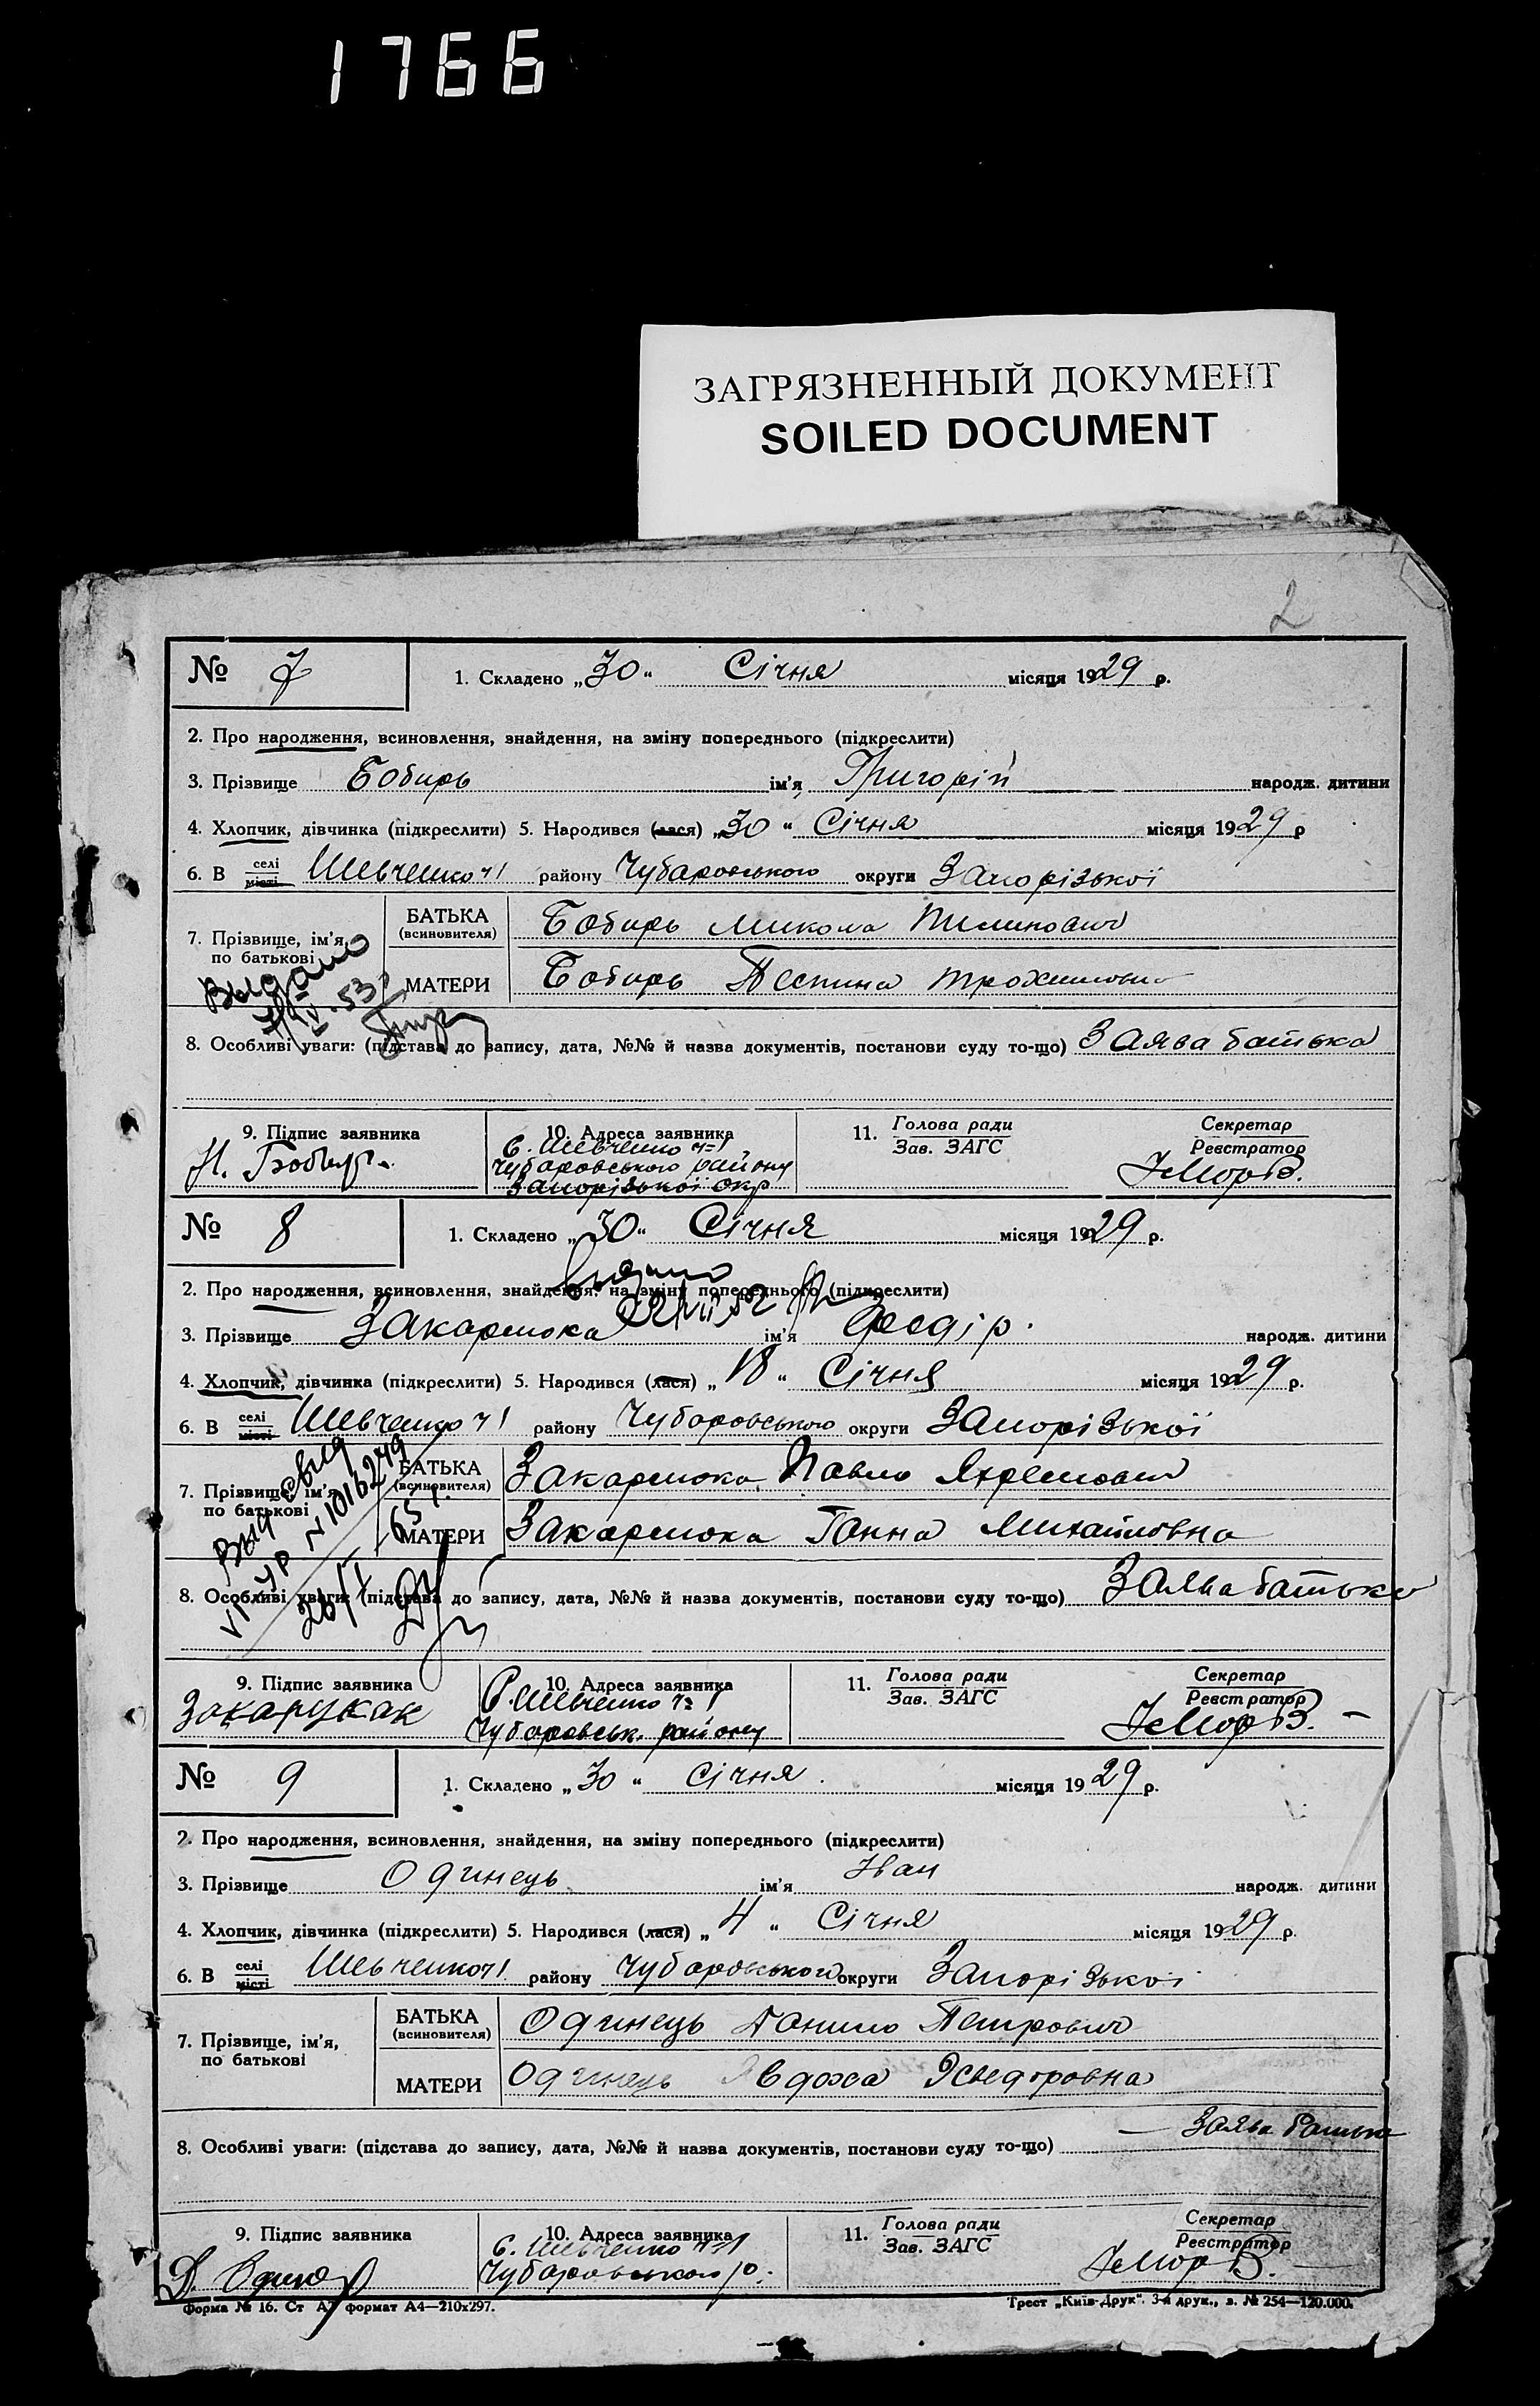 1766
ЗАГРЯЗНЕННЫЙ ДОКУМЕНТ
SOILED DOCUMENT
2
№ 7 1. Складено „30“ Січня місяця 1929 р.
2. Про народження, всиновлення, знайдення, на зміну попереднього (підкреслити)
3. Прізвище Бобирь ім'я Григорій народж. дитини
4. Хлопчик, дівчинка (підкреслити) 5. Народився (лася) „30“ Січня місяця 1929 р
6. В селі місті Шевченко ч1 району Чубаровського округи Запорізької
7. Прізвище, ім'я, по батькові
БАТЬКА (всиновителя) Бобирь Микола
МАТЕРИ Бобирь
Выдано
8. Особливі уваги: (підстава до запису, дата, №№ й назва документів, постанови суду то-що) Заява батька
9. Підпис заявника 10. Адреса заявника 11. Голова ради Зав. ЗАГС Секретар Реєстратор
Н. Бобирь
С. Шевченко ч=1
Чубаровського району
Запорізької окр
№ 8 1. Складено „30“ Січня місяця 1929 р.
Выдано
2. Про народження, всиновлення, знайдення, на зміну попереднього (підкреслити)
3. Прізвище Закарлюка ім'я Федір. народж. дитини
4. Хлопчик, дівчинка (підкреслити) 5. Народився (лася) „18“ Січня місяця 1929 р.
6. В селі місті Шевченко ч1 району Чубаровського округи Запорізької
7. Прізвище, ім'я, по батькові
БАТЬКА (всиновителя) Закарлюка Павло
МАТЕРИ Закарлюка Ганна Михайловна
8. Особливі уваги: (підстава до запису, дата, №№ й назва документів, постанови суду то-що) Заява батька
9. Підпис заявника 10. Адреса заявника 11. Голова ради Зав. ЗАГС Секретар Реєстратор
С. Шевченко ч=1
Чубаровськ. району
№ 9 1. Складено „30“ Січня. місяця 1929 р.
2. Про народження, всиновлення, знайдення, на зміну попереднього (підкреслити)
3. Прізвище Одинець ім'я Іван народж. дитини
4. Хлопчик, дівчинка (підкреслити) 5. Народився (лася) „4“ Січня місяця 1929 р.
6. В селі місті Шевченко ч1 району Чубаровського округи Запорізької
7. Прізвище, ім'я, по батькові
БАТЬКА (всиновителя) Одинець Данило Петрович
МАТЕРИ Одинець Явдоха
8. Особливі уваги: (підстава до запису, дата, №№ й назва документів, постанови суду то-що) Заява батька
9. Підпис заявника 10. Адреса заявника 11. Голова ради Зав. ЗАГС Секретар Реєстратор
С. Шевченко ч=1
Чубаровського р.
Форма № 16. Ст А7 формат А4—210х297. Трест „Київ-Друк“. 3-я друк., з. № 254—120.000.